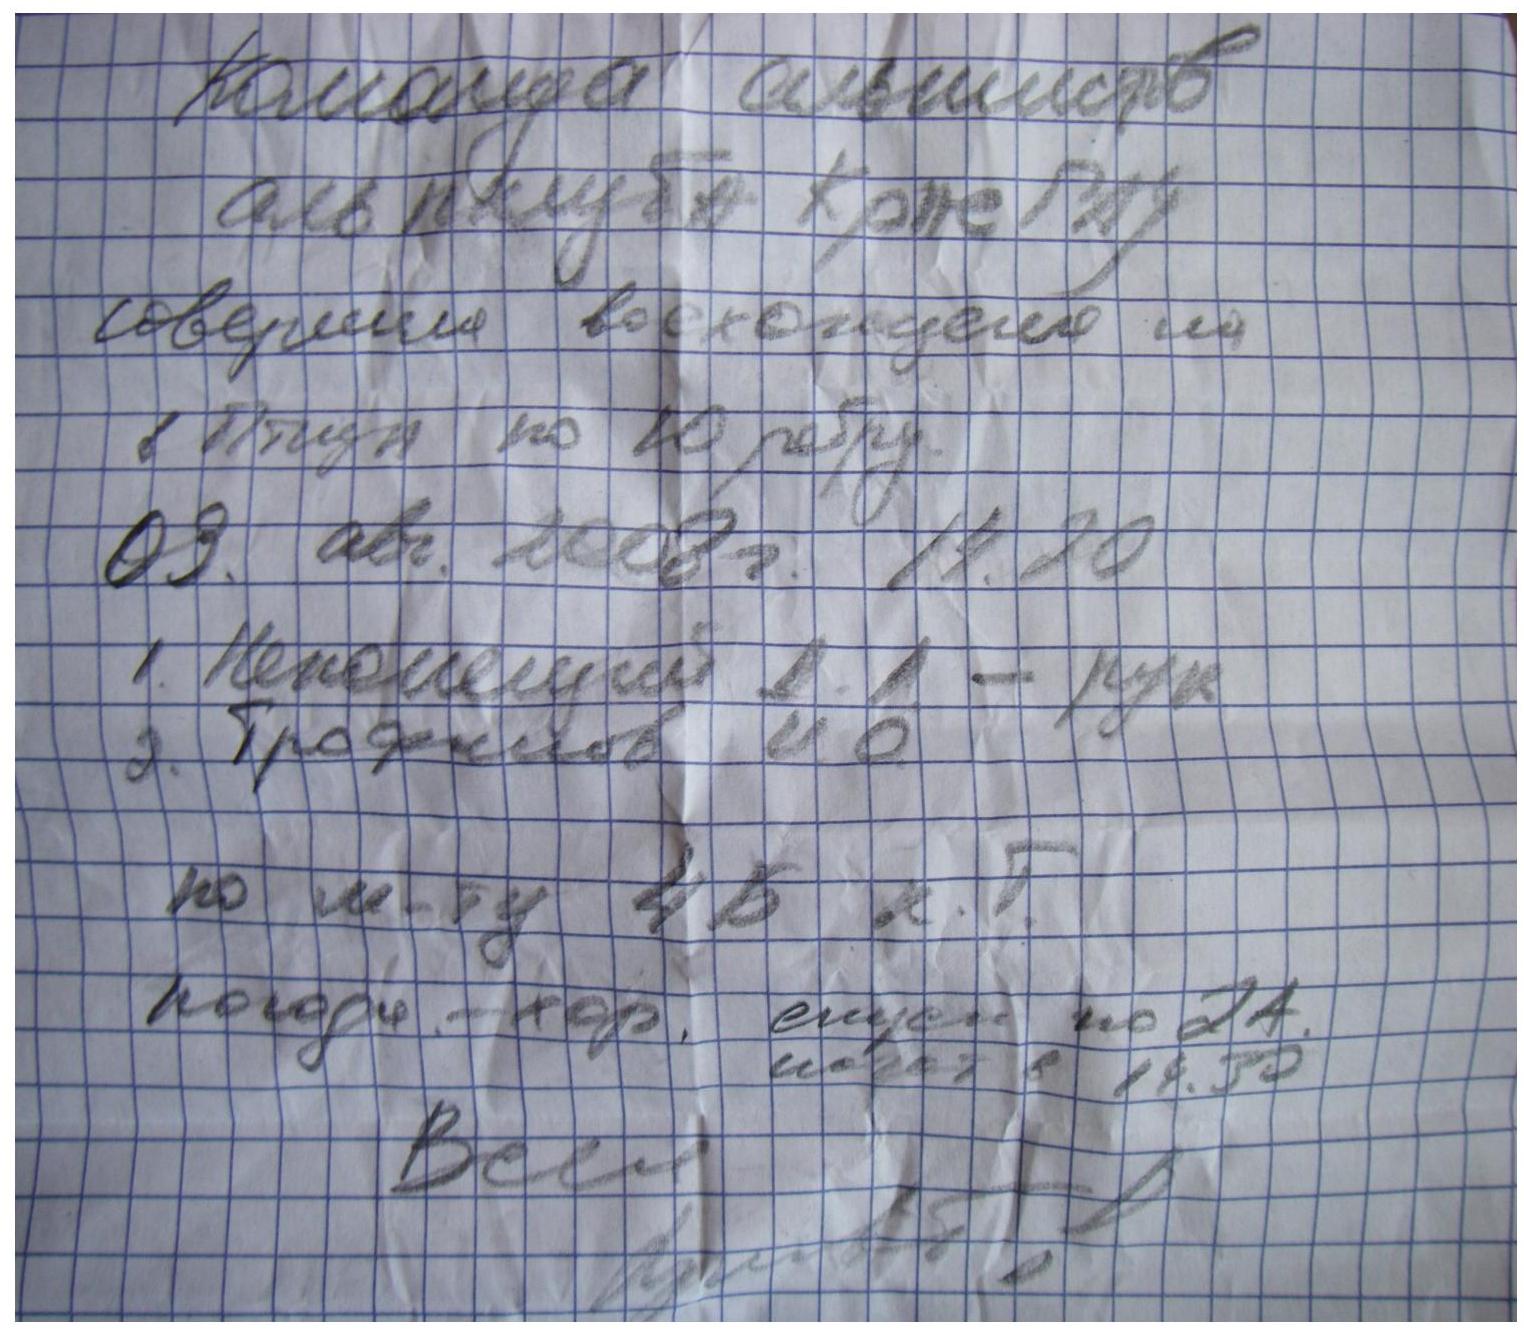 Команда альпинистов
альпклуба КрасГАУ
совершила восхождение на
в. Птица по Ю ребру.
03. авг. 2008г. 14.20
1. Непомнещий – рук
2. Трофимов И.О.
по м-ту 4Б к.т.
погода – хор. спуск по 2А.
начат в 14.50
Всем
привет!